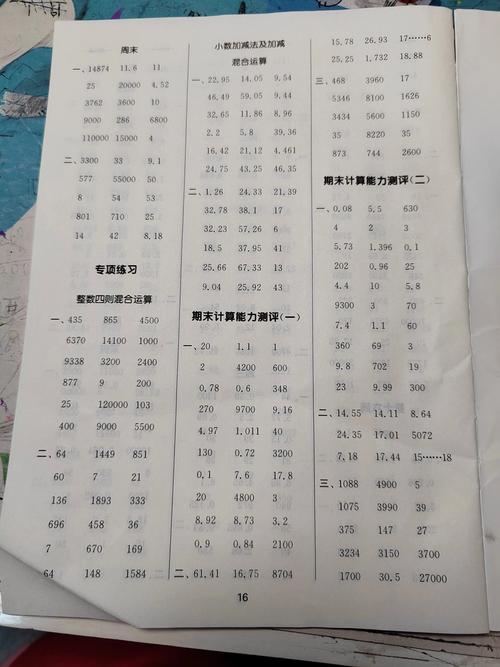 周末
一、14874 11.6 11
25 20000 4.52
3762 3600 10
9000 286 6800
110000 15000 4
二、3300 33 9.1
577 55000 50
8 54 53
801 710 25
14 42 8.18
专项练习
整数四则混合运算
一、435 865 4500
6370 14100 1000
9338 3200 2400
877 9 200
25 120000 103
400 9000 5500
二、64 1449 851
60 7 21
136 1893 333
696 458 36
7 670 169
64 148 1584
小数加减法及加减
混合运算
一、22.95 14.05 9.54
46.49 59.05 9.44
32.65 11.86 8.96
2.2 5.8 39.36
16.42 21.12 4.461
24.75 43.25 46.35
二、1.26 24.33 21.39
32.78 38.1 17
32.23 57.26 6
18.5 37.95 41
25.66 67.33 13
9.04 25.92 43
期末计算能力测评(一)
一、20 1.1 1
2 4200 600
0.78 0.6 348
270 9700 9.16
4.97 1.011 40
130 0.72 3200
0.1 7.6 17.8
20 4800 3
8.92 8.73 3.2
0.9 0.84 2100
二、61.41 16.75 8704
15.78 26.93 17……6
25.25 1.732 18.88
三、468 3960 17
5346 8100 1626
3434 5600 1150
35 8220 35
873 744 2600
期末计算能力测评(二)
一、0.08 5.5 630
4 2 3
5.73 1.396 0.1
202 0.96 25
4.4 10 5.8
9300 3 70
7.4 1.1 60
360 69 3
9.8 702 19
23 9.99 300
二、14.55 14.11 8.64
24.35 17.01 5072
7.18 17.44 15……18
三、1088 4900 5
1075 3990 39
375 147 27
3234 3150 3700
1700 30.5 27000
16